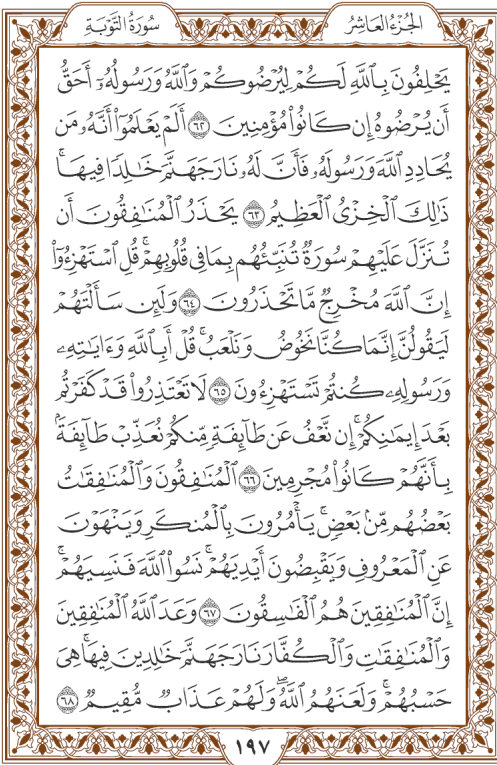 الجُزْءُ العَاشِرُ
سُورَةُ التَّوْبَةِ
يَحْلِفُونَ بِٱللَّهِ لَكُمْ لِيُرْضُوكُمْ وَٱللَّهُ وَرَسُولُهُۥٓ أَحَقُّ
أَن يُرْضُوهُ إِن كَانُوا۟ مُؤْمِنِينَ ٦٢ أَلَمْ يَعْلَمُوٓا۟ أَنَّهُۥ مَن
يُحَادِدِ ٱللَّهَ وَرَسُولَهُۥ فَأَنَّ لَهُۥ نَارَ جَهَنَّمَ خَٰلِدًا فِيهَا ۚ
ذَٰلِكَ ٱلْخِزْىُ ٱلْعَظِيمُ ٦٣ يَحْذَرُ ٱلْمُنَٰفِقُونَ أَن
تُنَزَّلَ عَلَيْهِمْ سُورَةٌ تُنَبِّئُهُم بِمَا فِى قُلُوبِهِمْ ۚ قُلِ ٱسْتَهْزِءُوٓا۟
إِنَّ ٱللَّهَ مُخْرِجٌ مَّا تَحْذَرُونَ ٦٤ وَلَئِن سَأَلْتَهُمْ
لَيَقُولُنَّ إِنَّمَا كُنَّا نَخُوضُ وَنَلْعَبُ ۚ قُلْ أَبِٱللَّهِ وَءَايَٰتِهِۦ
وَرَسُولِهِۦ كُنتُمْ تَسْتَهْزِءُونَ ٦٥ لَا تَعْتَذِرُوا۟ قَدْ كَفَرْتُم
بَعْدَ إِيمَٰنِكُمْ ۚ إِن نَّعْفُ عَن طَآئِفَةٍ مِّنكُمْ نُعَذِّبْ طَآئِفَةًۢ
بِأَنَّهُمْ كَانُوا۟ مُجْرِمِينَ ٦٦ ٱلْمُنَٰفِقُونَ وَٱلْمُنَٰفِقَٰتُ
بَعْضُهُم مِّنۢ بَعْضٍ ۚ يَأْمُرُونَ بِٱلْمُنكَرِ وَيَنْهَوْنَ
عَنِ ٱلْمَعْرُوفِ وَيَقْبِضُونَ أَيْدِيَهُمْ ۚ نَسُوا۟ ٱللَّهَ فَنَسِيَهُمْ ۗ
إِنَّ ٱلْمُنَٰفِقِينَ هُمُ ٱلْفَٰسِقُونَ ٦٧ وَعَدَ ٱللَّهُ ٱلْمُنَٰفِقِينَ
وَٱلْمُنَٰفِقَٰتِ وَٱلْكُفَّارَ نَارَ جَهَنَّمَ خَٰلِدِينَ فِيهَا ۚ هِىَ
حَسْبُهُمْ ۚ وَلَعَنَهُمُ ٱللَّهُ ۖ وَلَهُمْ عَذَابٌ مُّقِيمٌ ٦٨
١٩٧